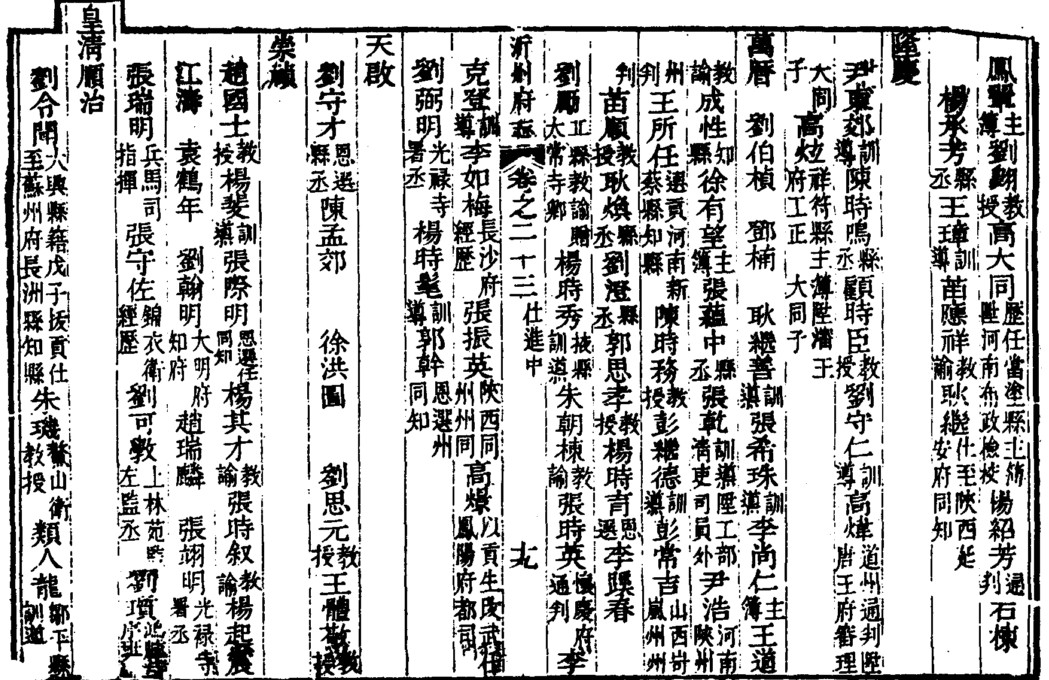 鳳翼主簿劉翊教授高大同歷任當塗縣主簿陞河南布政檢校楊紹芳通判石棟
楊承芳縣丞王璋訓導苗應祥教諭耿繼仕至陝西延安府同知
隆慶
尹東郊訓導陳時鳴縣丞顧時臣教授劉守仁訓導高煒道州通判陞唐王府審理
大同子高炫立祥符縣主簿陞濟王府工正大同子
萬曆 劉伯楨 鄧楠 耿繼善訓導張希珠訓導李尚仁主簿王道
教諭成性知縣徐有望主簿張蘊中縣丞張乾訓導陞工部清吏司員外尹浩河南陝州
州判王所任選貢河南新蔡縣知縣陳時務教授彭繼德訓導彭常吉山西岢嵐州州
判苗順教授耿煥縣丞劉澄縣丞郭思孝教授楊時育恩選李暎春
劉勵工縣教諭贈太常寺卿楊時秀掖縣訓導朱朝棟教諭張時英慶府通判李
沂州府志 卷之二十三 仕進中 十九
克登訓導李如梅長沙府經歷張振英陝西同州州同高爆以貢生改武任鳳陽府都司
劉弼明光祿寺署丞楊時髦訓導郭幹恩選州同知
天啟
劉守才恩選縣丞陳孟郊 徐洪圖 劉思元教授王體敬教授
崇禎
趙國士教授楊斐訓導張際明恩選任同知楊其才教諭張時敘教諭楊起震
江濤 袁鶴年 劉翰明大明府知府趙瑞麟 張翊明光祿寺署丞
張瑞明兵馬司指揮張守佐錦衣衛經歷劉可斅上林苑監左監丞劉
皇清順治
劉令聞大興縣籍戊子拔貢仕至蘇州府長洲縣知縣朱璣鰲山衛教授類人龍鄒平縣訓導